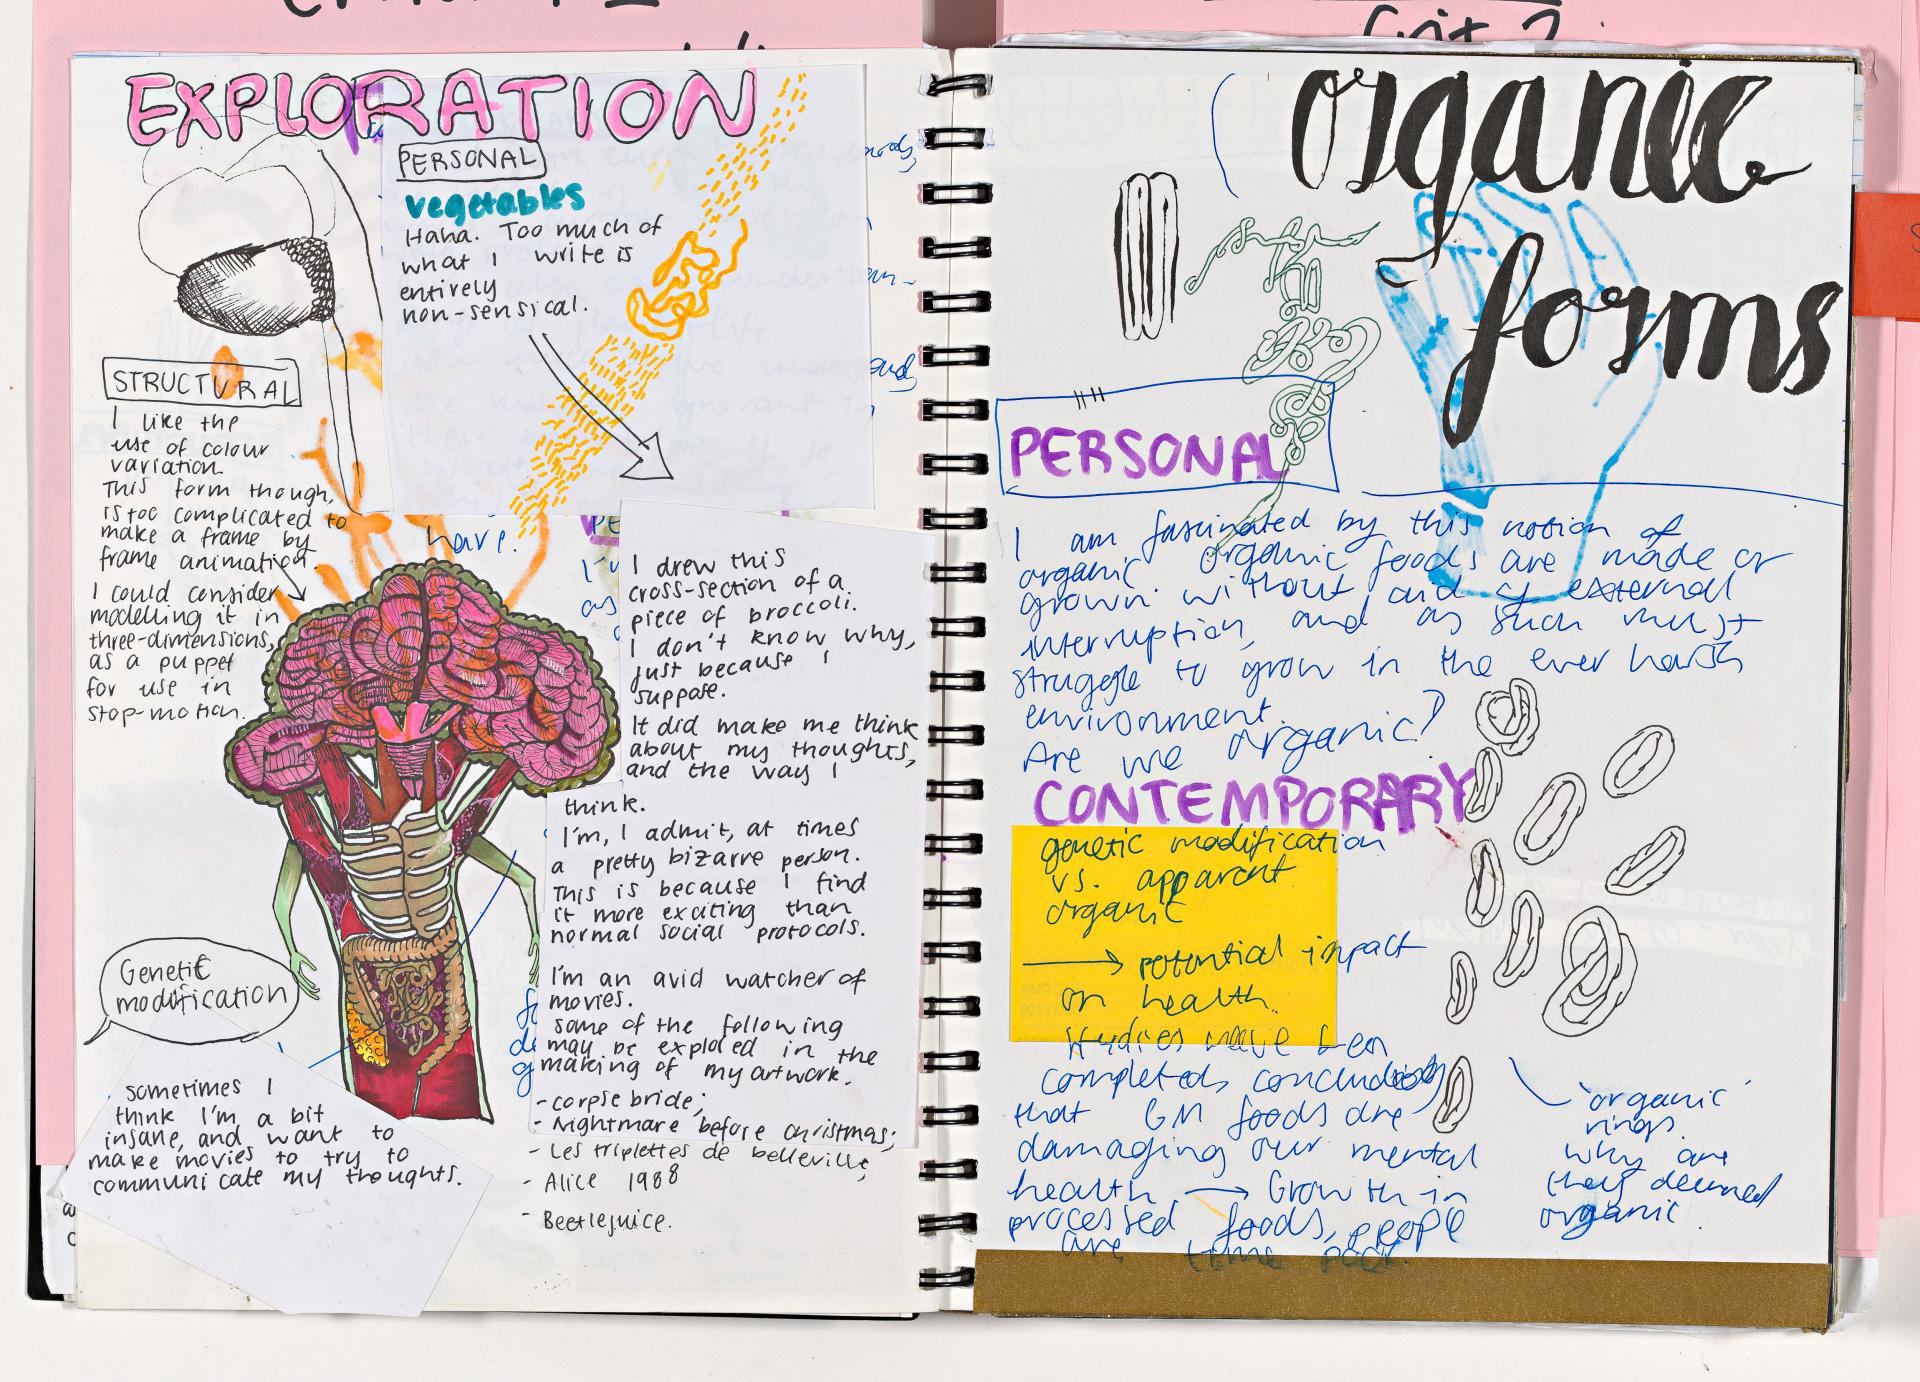 Crit 2.
EXPLORATION
PERSONAL
vegetables
Haha. Too much of
what I write is
entirely
non-sensical.
STRUCTURAL
I like the
use of colour
variation.
This form though,
is too complicated to
make a frame by
frame animation.
I could consider
modelling it in
three-dimensions,
as a puppet
for use in
stop-motion.
have.
I drew this
cross-section of a
piece of broccoli.
I don't know why,
just because I
suppose.
It did make me think
about my thoughts,
and the way I
think.
I'm, I admit, at times
a pretty bizarre person.
This is because I find
it more exciting than
normal social protocols.
I'm an avid watcher of
movies.
some of the following
may be explored in the
making of my artwork.
- corpse bride;
- Nightmare before christmas;
- Les triplettes de belleville;
- Alice 1988
- Beetlejuice.
Genetic
modification
sometimes I
think I'm a bit
insane, and want to
make movies to try to
communicate my thoughts.
organic
forms
PERSONAL
I am fascinated by this notion of
organic organic foods are made or
grown without aid of external
interruption, and as such must
struggle to grow in the ever harsh
environment.
Are we organic?
CONTEMPORARY
genetic modification
vs. apparent
organic
→ potential impact
on health.
Studies have been
completed, concluding
that GM foods are
damaging our mental
health → Growth in
processed foods, people
are time poor.
'organic
rings.
why are
they deemed
organic.